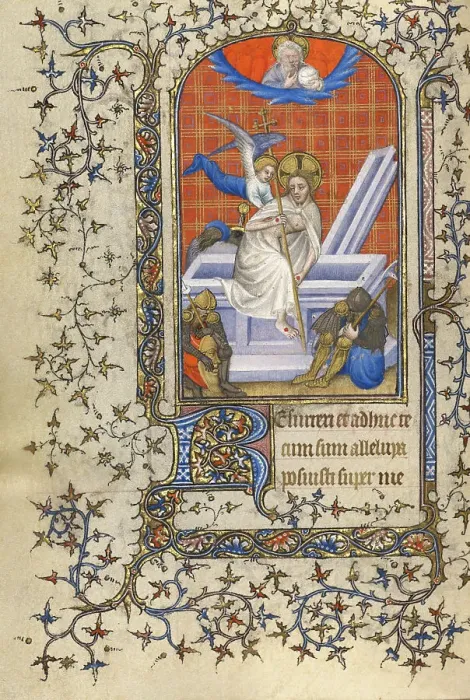 Resurrexi et adhuc te
cum sum alleluya
posuisti super me